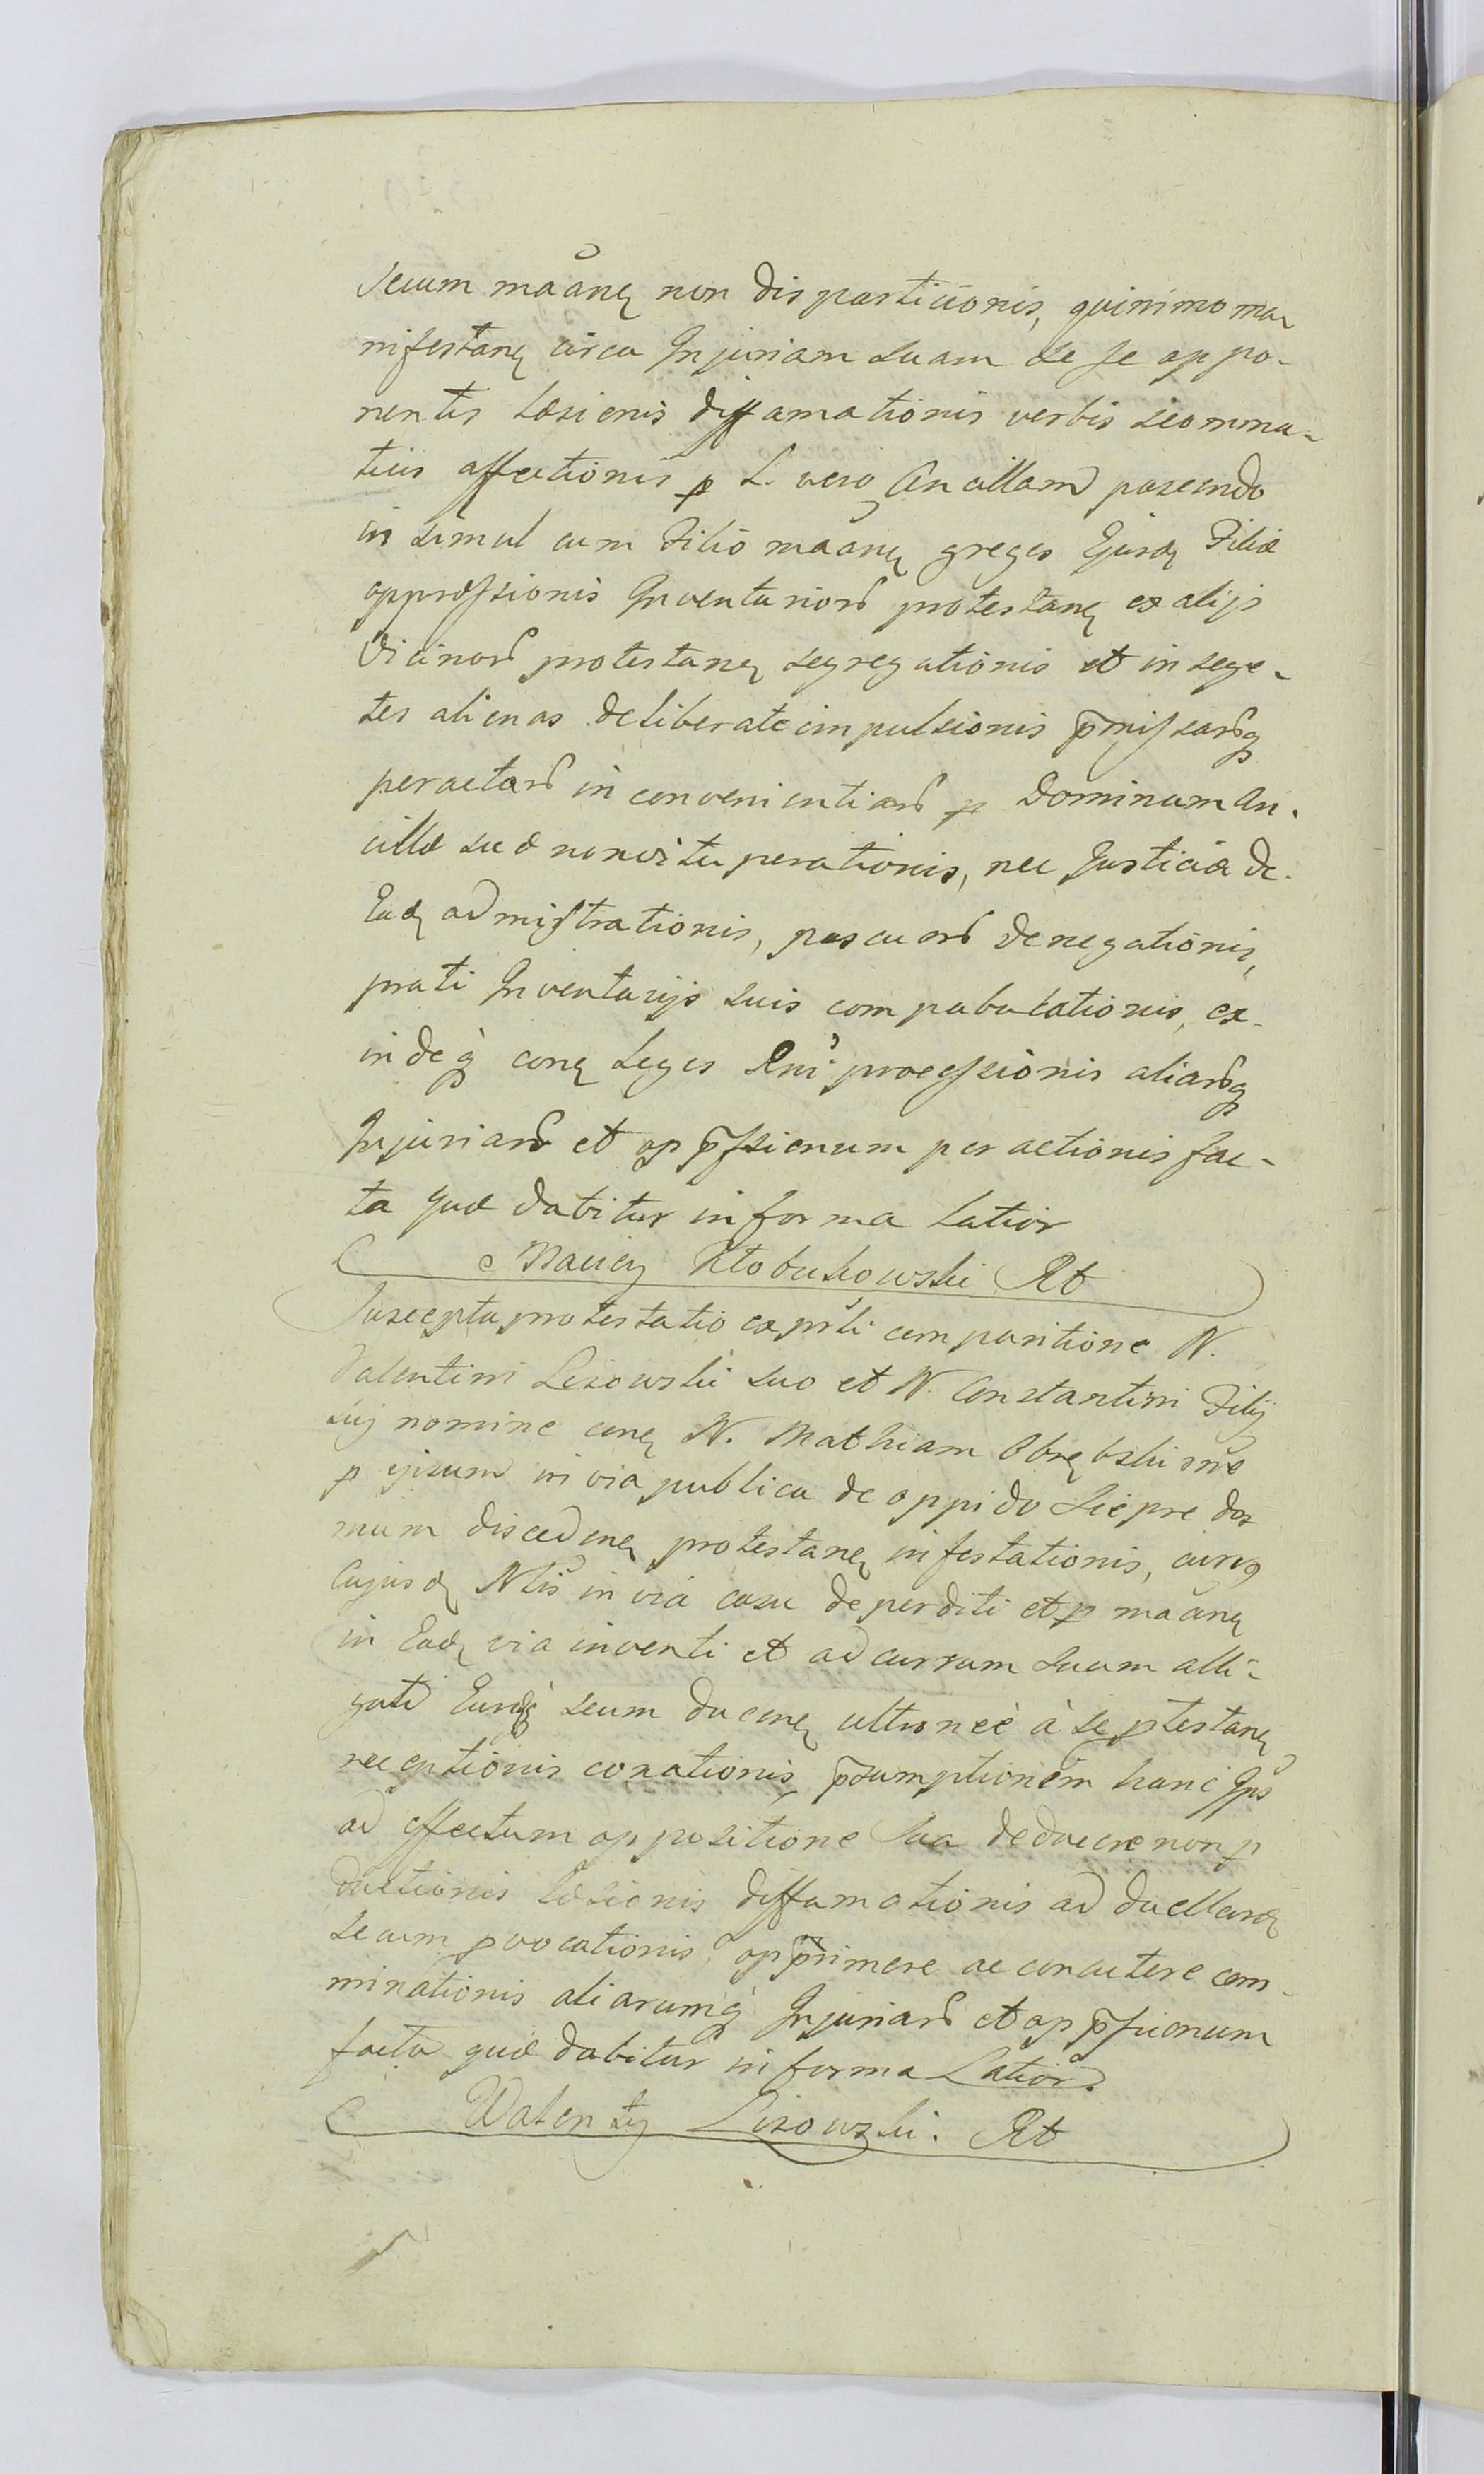 secum maãnę non dispartitionis, quinimo ma-
nifestanę circa Injuriam suam se se oppo-
nentis læsionis diffamationis verbis scomma-
ticis affectionis p L. vero Ancillam pascendo
in simul cum Filio maãnę greges Ejusdę Filiæ
oppressionis Inventarior protestanę ex alijs
Vicinor protestanę segregationis et in sege-
tes alienas deliberate impulsionis p̄missarq
peractar inconvenientiar p Dominum An-
cillæ suæ non vituperationis, nec Justitiæ de
Eadę admistrationis, pascuor denegationis,
prati Inventarijs suis compabulationis, ex-
indeq conę Leges Rni processionis aliarq
Injuriar et opp̄ssionum peractionis fac-
ta quæ dabitur in forma latior
Maciey Kłobukowski Rt
Suscepta protestatio ex prsti comparitione N.
Valentini Lisowski suo et N. Constantini Filij
sui nomine conę N. Mathiam Obrębski rne
p ipsum in via publica de oppido Sierpc do-
mum discedenę protestanę infestationis,
Cujusdę Ntis in via casu deperditi et p maãnę
in Eadę via inventi et ad currum suum alli-
gati secum ducenę ultronee à se ptestanę
receptionis conationis, p̄sumptionem hanc Ips
ad effectum oppositione sua deducere non p
ductionis læsionis diffamationis ad duellandę
secum provocationis, opprimere ac concutere com-
minationis aliarumq Injuriar et opp̄ssionum
facta quæ dabitur in forma Latior.
Walenty Lisowski. Rt